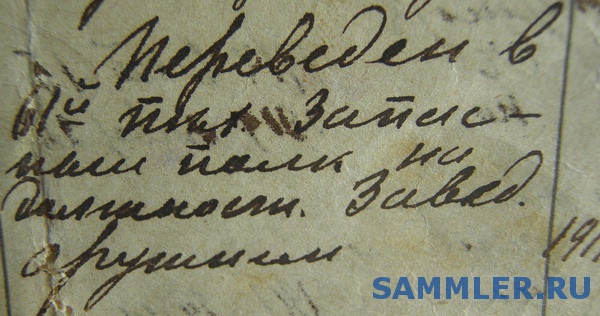 Переведен в
й пех запас-
ный полк на
должность. Завед.
оружием
191
SAMMLER.RU